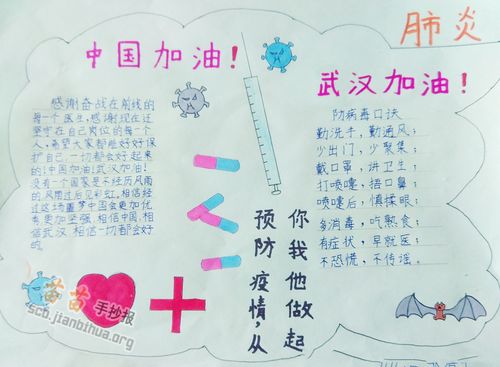 肺炎
中国加油！
武汉加油！
感谢奋战在前线的
每一个医生,感谢现在还
坚守在自己岗位的每一个
人,希望大家都能好好保
护自己,一切都会好起来
的!中国加油!武汉加油!
没有一个国家是不经历风雨
的风雨过后见彩虹,相信经
过这场噩梦中国会更加优
秀更加坚强.相信中国.相
信武汉.相信一切都会好
的
防病毒口诀
勤洗手，勤通风；
少出门，少聚集；
戴口罩，讲卫生；
打喷嚏，捂口鼻；
喷嚏后，慎揉眼；
多消毒，吃熟食；
有症状，早就医；
不恐慌，不传谣。
预防疫情，从
你我他做起
苗苗手抄报
scb.jianbihua.org